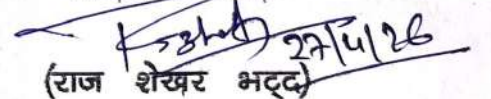 27/4/26
(राज शेखर भट्ट)